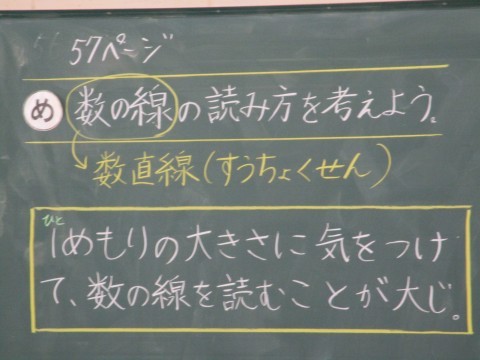 57ページ
め 数の線の読み方を考えよう。
数直線(すうちょくせん)
ひと
1めもりの大きさに気をつけ
て、数の線を読むことが大じ。